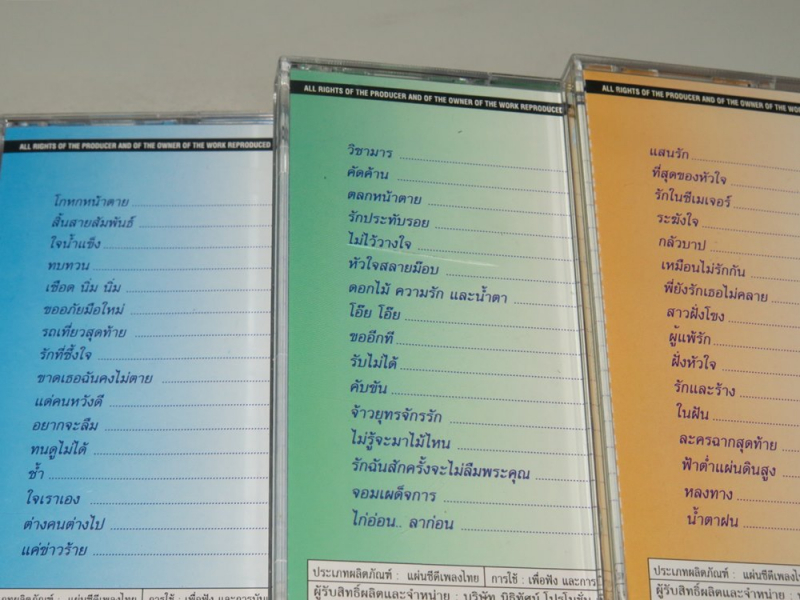 ALL RIGHTS OF THE PRODUCER AND OF THE OWNER OF THE WORK REPRODUCED
โกหกหน้าตาย
สิ้นสายสัมพันธ์
ใจน้ำแข็ง
ทบทวน
เชือด นิ่ม นิ่ม
ขออภัยมือใหม่
รถเที่ยวสุดท้าย
รักที่ซึ้งใจ
ขาดเธอฉันคงไม่ตาย
แด่คนหวังดี
อยากจะลืม
ทนดูไม่ได้
ช้ำ
ใจเราเอง
ต่างคนต่างไป
แค่ข่าวร้าย
แผ่นซีดีเพลงไทย การใช้ : เพื่อฟัง
ALL RIGHTS OF THE PRODUCER AND OF THE OWNER OF THE WORK REPRODUCED
วิชามาร
คัดค้าน
ตลกหน้าตาย
รักประทับรอย
ไม่ไว้วางใจ
หัวใจสลายม๊อบ
ดอกไม้ ความรัก และน้ำตา
โอ๊ย โอ๊ย
ขออีกที
รับไม่ได้
คับขัน
จ้าวยุทธจักรรัก
ไม่รู้จะมาไม้ไหน
รักฉันสักครั้งจะไม่ลืมพระคุณ
จอมเผด็จการ
ไก่อ่อน.. ลาก่อน
ประเภทผลิตภัณฑ์ : แผ่นซีดีเพลงไทย การใช้ : เพื่อฟัง และการ
ผู้รับสิทธิ์ผลิตและจำหน่าย : บริษัท นิธิทัศน์ โปรโมชั่น
ALL RIGHTS OF THE PRODUCER AND OF THE OWNER OF THE
แสนรัก
ที่สุดของหัวใจ
รักในซีเมเจอร์
ระฆังใจ
กลัวบาป
เหมือนไม่รักกัน
พี่ยังรักเธอไม่คลาย
สาวฝั่งโขง
ผู้แพ้รัก
ฝั่งหัวใจ
รักและร้าง
ในฝัน
ละครฉากสุดท้าย
ฟ้าต่ำแผ่นดินสูง
หลงทาง
น้ำตาฝน
ประเภทผลิตภัณฑ์ : แผ่นซีดีเพลง
ผู้รับสิทธิ์ผลิตและจำหน่าย :